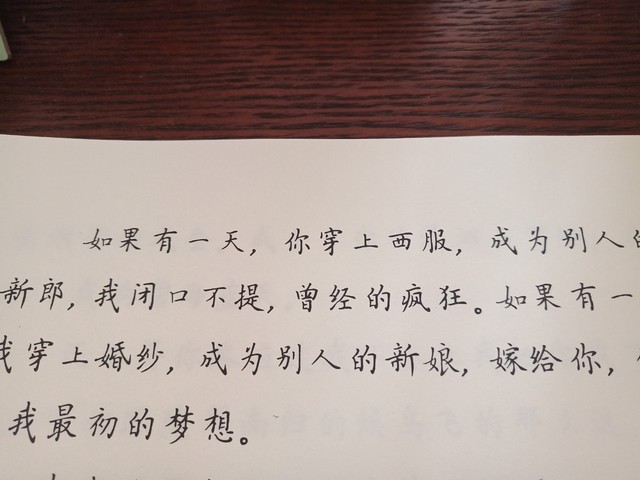 如果有一天,你穿上西服,成为别人的
新郎,我闭口不提,曾经的疯狂。如果有一
我穿上婚纱,成为别人的新娘,嫁给你,
我最初的梦想。